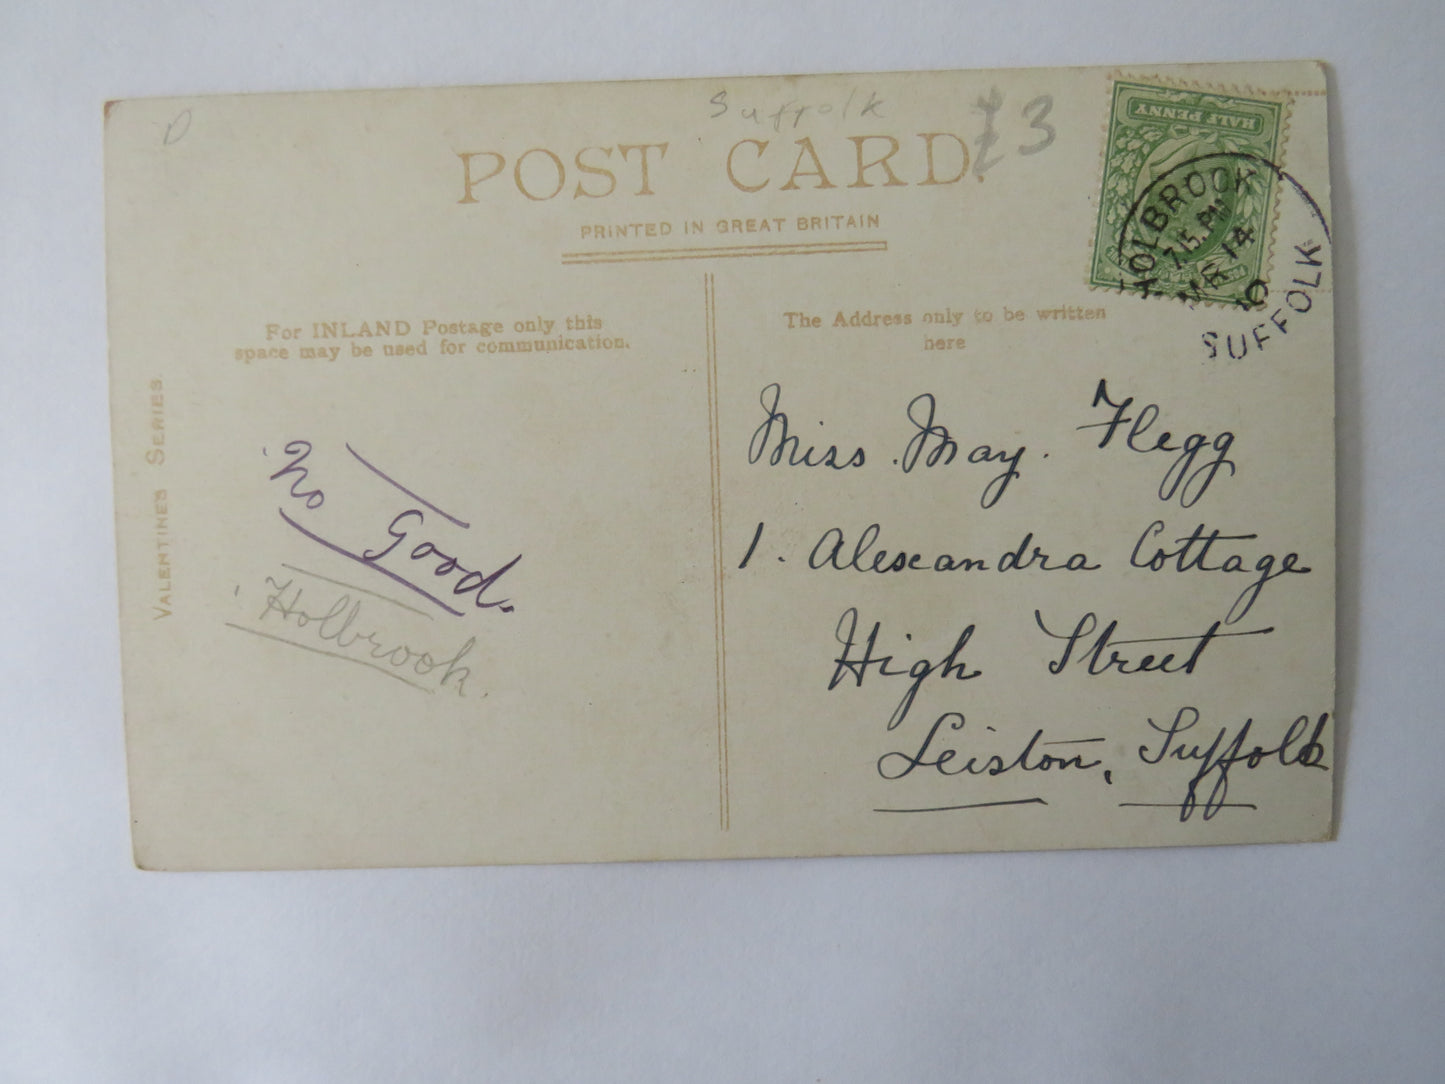 D
Suffolk
£3
POST CARD.
PRINTED IN GREAT BRITAIN
HALF PENNY
HOLBROOK
7.15.PM
MR 14
10
SUFFOLK
For INLAND Postage only this
space may be used for communication.
The Address only to be written
here
VALENTINE'S SERIES.
No Good.
Holbrook.
Miss. May. Flegg
1. Alexandra Cottage
High Street
Leiston, Suffolk